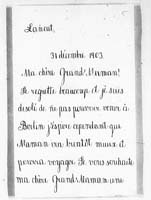 Lausent,
31 décembre 1903.
Ma chère Grand'Maman!
Je regrette beaucoup et je suis
désolé de ne pas pouvoir venir à
Berlin j'éspère cependant que
Maman ira bientôt mieux et
pourra voyager. Je vous souhaite
ma chère Grand-Maman une